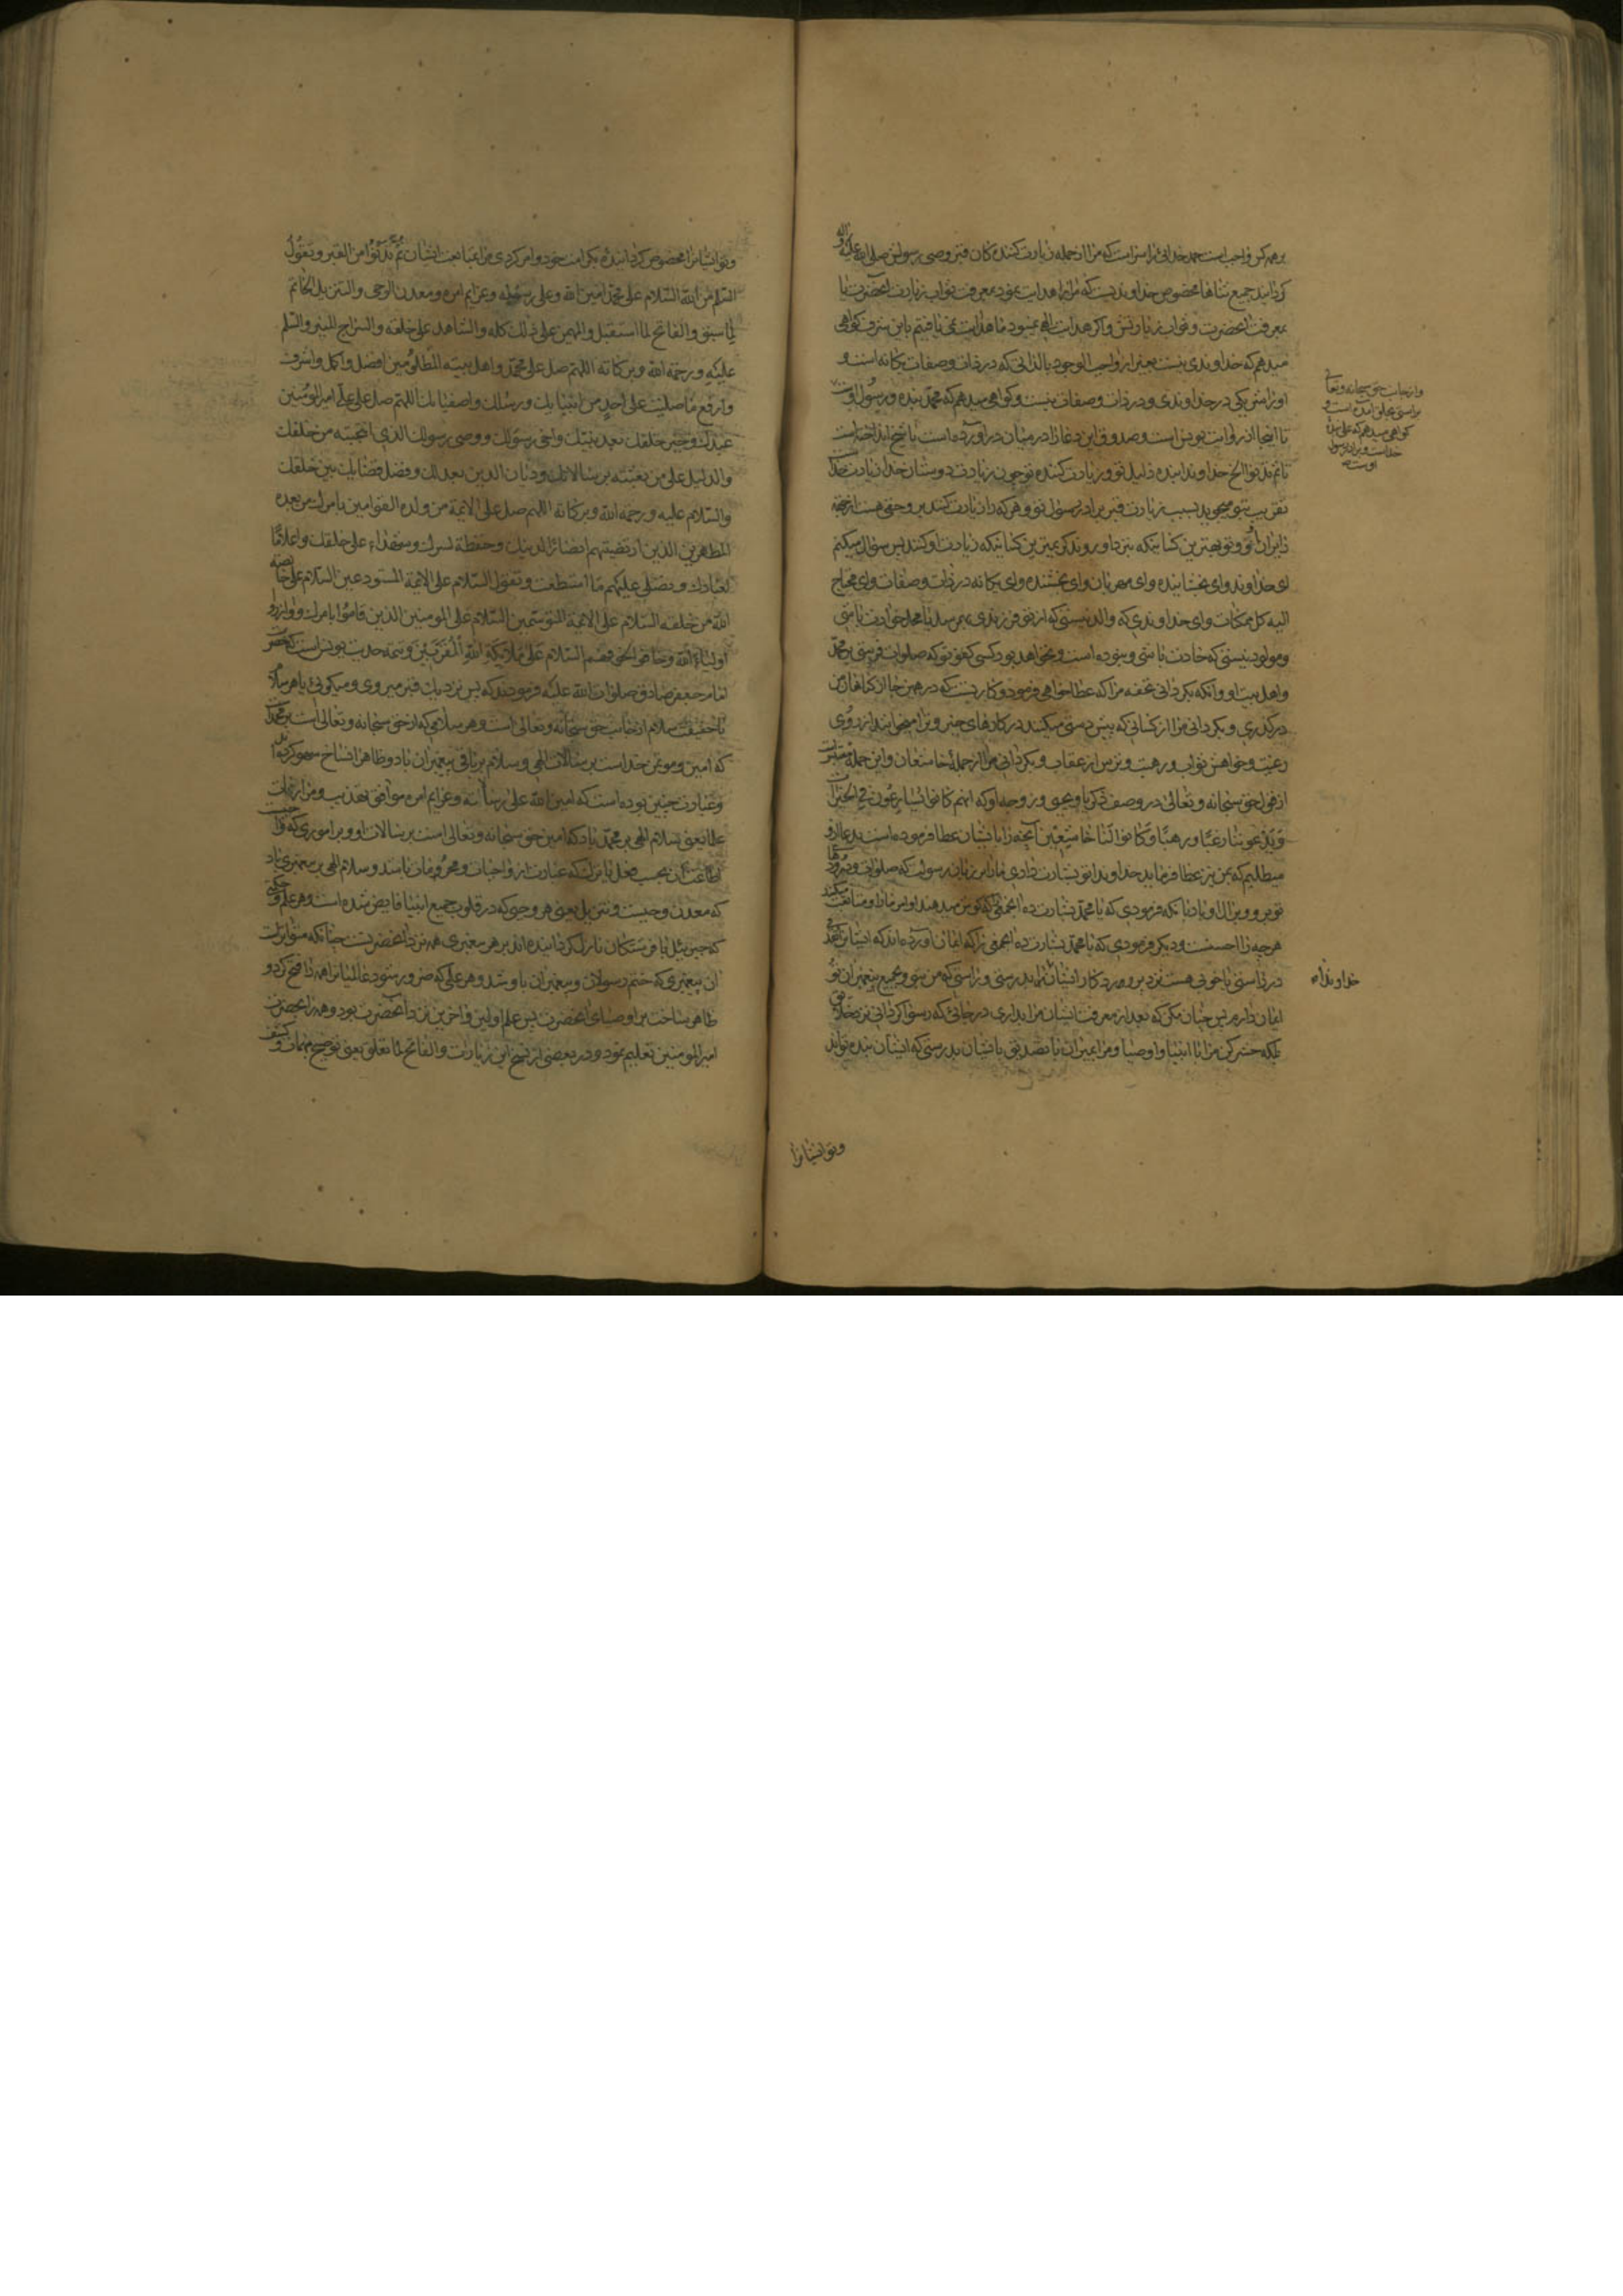 بر همه کس واجبست حمد خدائی را سزاست که مرا از جمله زیارت کننده کان قبر وصی رسولش صلی الله علیه و آله
کردانید جمیع ثناها مخصوص خداوندیست که مرا هدایت نمود بمعرفت ثواب زیارت انحضرت یا
بمعرفت انحضرت و ثواب زیارتش و اکر هدایت الهی نمیبود ما هدایت نمی یافتیم باین شرف کواهی
میدهم که خداوندی نیست بغیر از واجب الوجود بالذاتی که در ذات و صفات یکانه است و
او را مثل یکی در خداوندی و در ذات و صفات نیست و کواهی میدهم که محمد بنده و رسول اوست
وازجانب حق سبحانه وتعالی
براستی بخلق آمده است و
کواهی میدهم که علی بنده
خداست و برادر رسول
اوست
تا اینجا از روایت یونس است و صدوق این دعا را در میان در آورده است یا نسخ انداخته است
تا تمه اللهم الخ خداوندا بنده ذلیل تو و زیارت کننده تو چون زیارت دوستان خدا زیارت خداست
تقرب بتو میجوید بسبب زیارت قبر برادر رسول تو و هر که را زیارت کنند بر او حقی هست از جهة
زایران او و تو بهترین کسانیکه بنزد او روند و کریمترین کسانیکه زیارت او کنند پس سؤال میکنم
ای خداوند و ای بخشاینده و ای مهربان و ای بخشنده و ای یکانه در ذات و صفات و ای محتاج
الیه کل ممکنات و ای خداوندی که والد نیستی که از تو فرزندی بهم رسد یا محل حوادث باشی
و مولود نیستی که حادث باشی و نبوده است و نخواهد بود کسی کفو تو که صلوات فرستی بر محمد
و اهل بیت او و آنکه بکردانی تحفه مرا که عطا خواهی فرمود و کاریست که در همین جا از کناهان من
درکذری و بکردانی مرا از کسانی که پیش دستی میکنند در کارهای خیر و ترا میخوانند از روی
رغبت و خواهش ثواب و رهبت و ترس از عقاب و بکردانی مرا از جملهٔ خاشعان و این جمله مقتبس است
از قول حق سبحانه و تعالی در وصف زکریا و یحیی و زوجه او که انهم کانوا یسارعون فی الخیرات
و یدعوننا رغبا و رهبا و کانوا لنا خاشعین آنچه را بایشان عطا فرموده است بدعا از او
میطلبم که بمن نیز عطا فرماید خداوندا تو بشارت دادی ما را بر زبان رسولت که صلوات و درودها
تو بر او و بر آل او باد بانکه فرمودی که یا محمد بشارت ده جمعی را که کوش میدهند اوامر ما را و متابعت میکنند
هرچه را احسنست و دیکر فرمودی که یا محمد بشارت ده جمعی را که ایمان آورده اند که ایشان را قدمی
در راستی یا خوبی هست نزد پروردکار ایشان خداوندا بدرستی و راستی که من بتو و بجمیع پیغمبران تو
خداوندا
ایمان دارم پس چنان مکن که بعد از معرفت ایشان مرا بداری در جائی که رسوا کردانی نزد خلایق
بلکه حشر کن مرا با انبیا و اوصیا و مرا بمیران با تصدیق بایشان بدرستی که ایشان بنده تواند
و تو ایشانرا
و تو ایشانرا مخصوص کردانیدهٔ بکرامت خود و امر کردی مرا بمتابعت ایشان ثم تدنوا من القبر و تقول
السلام من الله السلام علی محمد امین الله و علی رسوله و عزایم امره و معدن الوحی و التنزیل الخاتم
لما سبق و الفاتح لما استقبل و المهیمن علی ذلک کله و الشاهد علی خلقه و السراج المنیر و السلم
علیه و رحمة الله و برکاته اللهم صل علی محمد و اهل بیته المظلومین افضل و اکمل و اشرف
و ارفع ما صلیت علی احد من انبیائک و رسلک و اصفیائک اللهم صل علی علی امیر المؤمنین
عبدک و خیر خلقک بعد نبیک و اخی رسولک و وصی رسولک الذی انتجبته من خلقک
و الدلیل علی من بعثته برسالاتک و دیان الدین بعدلک و فصل قضائک بین خلقک
و السلام علیه و رحمة الله و برکاته اللهم صل علی الائمة من ولده القوامین بامرک من بعده
المطهرین الذین ارتضیتهم انصارا لدینک و حفظة لسرک و شهداء علی خلقک و اعلاما
لعبادک و تصلی علیهم ما استطعت و تقول السلام علی الائمة المستودعین السلام علی خاصة
الله من خلقه السلام علی الائمة المتوسمین السلام علی المؤمنین الذین قاموا بامرک و وازروا
اولیاء الله و خافوا بخوفهم السلام علی ملائکة الله المقربین و تتمه حدیث یونس است که حضرت
امام جعفر صادق صلوات الله علیه فرمودند که پس نزدیک قبر میروی و میکوئی یا هر سلام
یا حقیقت سلام از جانب حق سبحانه و تعالی است و هر سلامی که از حق سبحانه و تعالی است بر محمد است
که امین و موتمن خداست برسالات الهی و سلام بر باقی پیغمبران باد و ظاهرا نساخ سهو کرده اند
و عبارت چنین بوده است که امین الله علی رسالته و عزایم امره موافق تهذیب و مزار
علما یعنی سلام الهی بر محمد باد که امین حق سبحانه و تعالی است برسالات او و بر اموری که واجب
اطاعت ان بحسب فعل یا ترک که عبارت از واجبات و محرمات باشد و سلام الهی بر پیغمبری باد
که معدن وحیست و تنزیل یعنی هر وحیی که در قلوب جمیع انبیا فایض شده است و هر علم و حکمتی
که جبرئیل یا فرشتکان نازل کردانیده اند بر هر پیغمبری همه نزد انحضرتست چنانکه متواتر است
آن پیغمبری که ختم رسولان و پیغمبران باو شد و هر علمی که ضرور شود عالمیانرا همه را فتح کرد و
ظاهر ساخت بر اوصیای انحضرت پس علم اولین و آخرین نزد انحضرت بود و همه را انحضرت
امیر المومنین تعلیم نمود و در بعضی از نسخ این زیارت و الفاتح لما تغلق یعنی توضیح مبهمات و کشف